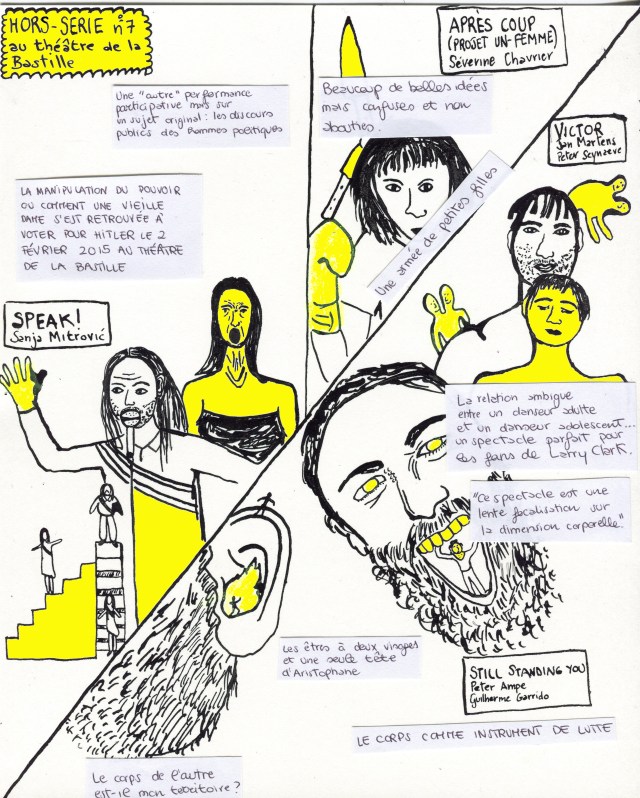 HORS-SERIE n°7
au théâtre de la
Bastille
Une "autre" performance
participative mais sur
un sujet original : les discours
publics des hommes politiques
LA MANIPULATION DU POUVOIR
OU COMMENT UNE VIEILLE
DAME S'EST RETROUVÉE À
VOTER POUR HITLER LE 2
FÉVRIER 2015 AU THÉÂTRE
DE LA BASTILLE
SPEAK!
Sanja Mitrović
APRÈS COUP
(PROJET UN-FEMME)
Séverine Chavrier
Beaucoup de belles idées
mais confuses et non
abouties.
Une armée de petites filles
VICTOR
Jan Martens
Peter Seynaeve
La relation ambigue
entre un danseur adulte
et un danseur adolescent...
un spectacle parfait pour
les fans de Larry Clark.
"Ce spectacle est une
lente focalisation sur
la dimension corporelle."
Les êtres à deux visages
et une seule tête
d'Aristophane
STILL STANDING YOU
Pieter Ampe
Guilherme Garrido
LE CORPS COMME INSTRUMENT DE LUTTE
Le corps de l'autre
est-il mon territoire ?